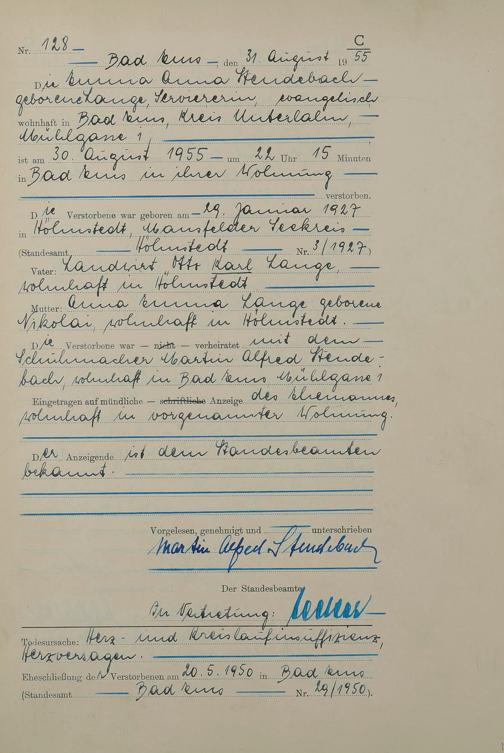 C
Nr. 128
55
Bad Ems, den 31. August 19
Die Emma Anna Stendebach
geborene Lange, Serviererin, evangelisch
wohnhaft in Bad Ems, Kreis Unterlahn,
Mühlgasse 1,
ist am 30. August 1955 um 22 Uhr 15 Minuten
in Bad Ems in ihrer Wohnung
verstorben.
Die Verstorbene war geboren am 29. Januar 1927
in Hölmstedt, Mansfelder Seekreis
(Standesamt Hölmstedt Nr. 3/1927)
Vater: Landwirt Otto Karl Lange,
wohnhaft in Hölmstedt
Mutter: Anna Emma Lange geborene
Nikolai, wohnhaft in Hölmstedt.
Die Verstorbene war — nicht — verheiratet mit dem
Schuhmacher Martin Alfred Stende-
bach, wohnhaft in Bad Ems Mühlgasse 1
Eingetragen auf mündliche — schriftliche Anzeige des Ehemannes,
wohnhaft in vorgenannter Wohnung.
Der Anzeigende ist dem Standesbeamten
bekannt.
Vorgelesen, genehmigt und unterschrieben
Martin Alfred Stendebach
Der Standesbeamte
In Vertretung:
Todesursache: Herz- und Kreislaufinsuffizienz,
Herzversagen.
Eheschließung der Verstorbenen am 20.5.1950 in Bad Ems
(Standesamt Bad Ems Nr. 29/1950).